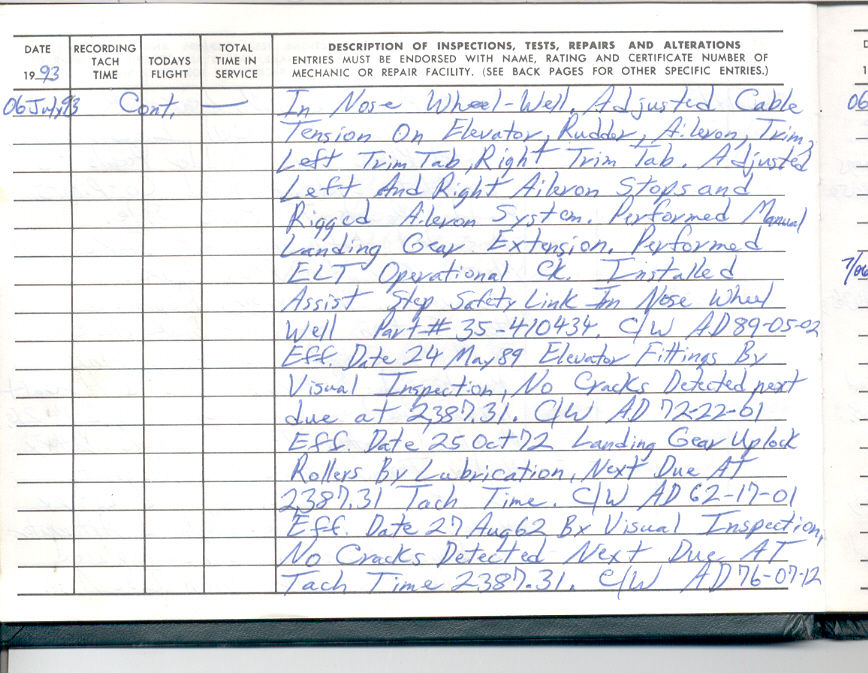 DATE
19 93
RECORDING
TACH
TIME
TODAYS
FLIGHT
TOTAL
TIME IN
SERVICE
DESCRIPTION OF INSPECTIONS, TESTS, REPAIRS AND ALTERATIONS
ENTRIES MUST BE ENDORSED WITH NAME, RATING AND CERTIFICATE NUMBER OF
MECHANIC OR REPAIR FACILITY. (SEE BACK PAGES FOR OTHER SPECIFIC ENTRIES.)
06 July 93 Cont. — In Nose Wheel-Well. Adjusted Cable
Tension On Elevator, Rudder, Aileron, Trim,
Left Trim Tab, Right Trim Tab. Adjusted
Left And Right Aileron Stops and
Rigged Aileron System. Performed Manual
Landing Gear Extension. Performed
ELT Operational Ck. Installed
Assist Step Safety Link In Nose Wheel
Well Part# 35-410434. C/W AD 89-05-02
Eff. Date 24 May 89 Elevator Fittings By
Visual Inspection, No Cracks Detected next
due at 2,387.31. C/W AD 72-22-01
Eff. Date 25 Oct 72 Landing Gear Uplock
Rollers By Lubrication, Next Due AT
2387.31 Tach Time. C/W AD 62-17-01
Eff. Date 27 Aug 62 By Visual Inspection,
No Cracks Detected Next Due AT
Tach Time 2387.31. C/W AD 76-07-12
D
1
06